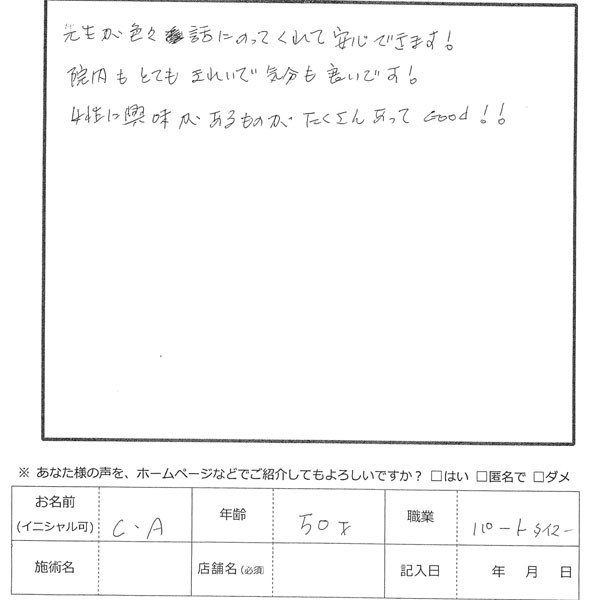 先生が色々話にのってくれて安心できます!
院内もとてもきれいで気分も良いです!
女性に興味があるものがたくさんあってGood!!
※ あなた様の声を、ホームページなどでご紹介してもよろしいですか？ □はい □匿名で □ダメ
お名前(イニシャル可) C.A 年齢 50才 職業 パートタイマー
施術名 店舗名(必須) 記入日 年 月 日